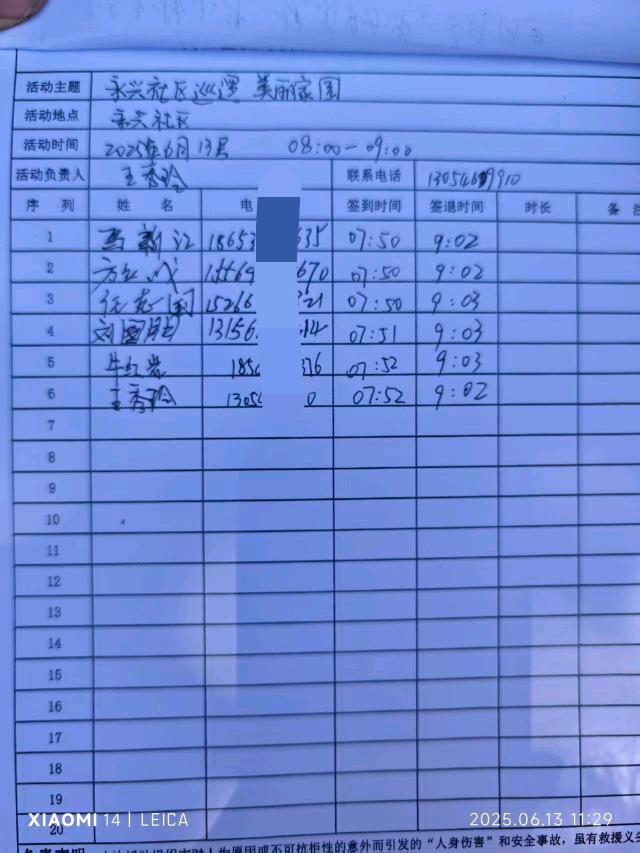 活动主题 永兴社区巡逻 美丽家园
活动地点 永兴社区
活动时间 2025年6月13号 08:00-09:00
活动负责人 王秀玲 联系电话
序 列 姓 名 电 签到时间 签退时间 时长 备
1 18653 635 07:50 9:02
2 670 07:50 9:02
3 任志国 15266 321 07:50 9:03
4 刘国胜 13156 414 07:51 9:03
5 牛红岩 185 376 07:52 9:03
6 王秀玲 1305 0 07:52 9:02
7
8
9
10
11
12
13
14
15
16
17
18
19
20
XIAOMI 14 | LEICA
2025.06.13 11:29
不可抗拒性的意外而引发的“人身伤害”和安全事故，虽有救援义